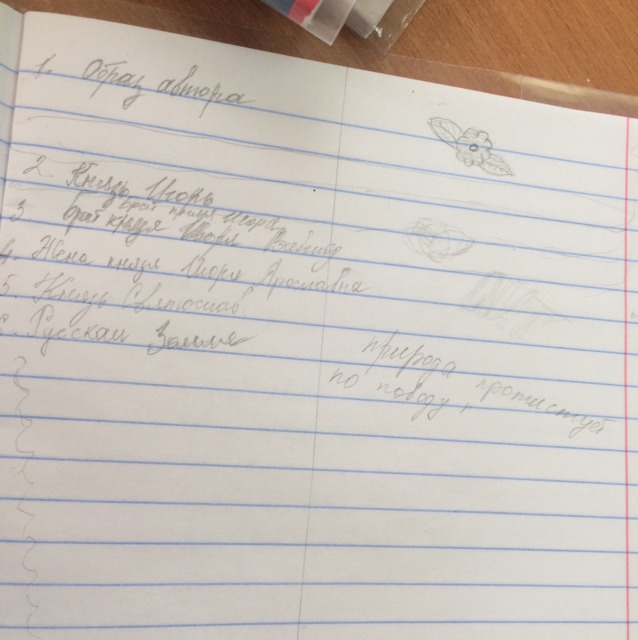 1. Образ автора
2. Князь Игорь
3 брат князя Игоря Всеволод
4. Жена князя Игоря Ярославна
5. Князь Святослав
6. Русская Земля
природа
по поводу,